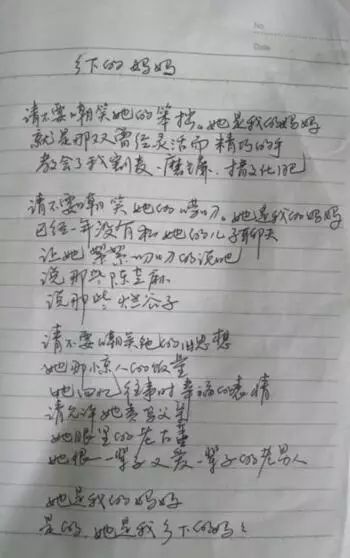 No.
Date
乡下的妈妈
请不要嘲笑她的笨拙。她是我的妈妈
就是那双曾经灵活而精巧的手
教会了我割麦、磨镰、揹文化肥
请不要嘲笑她的唠叨。她是我的妈妈
已经一年没有和她的儿子聊天
让她絮絮叨叨的说吧
说那些陈芝麻
说那些烂谷子
请不要嘲笑她的旧思想
她那惊人的饭量
她回忆往事时幸福的表情
请允许她责骂父亲
她眼里的老古董
她恨一辈子又爱一辈子的老男人
她是我的妈妈
是的，她是我乡下的妈妈